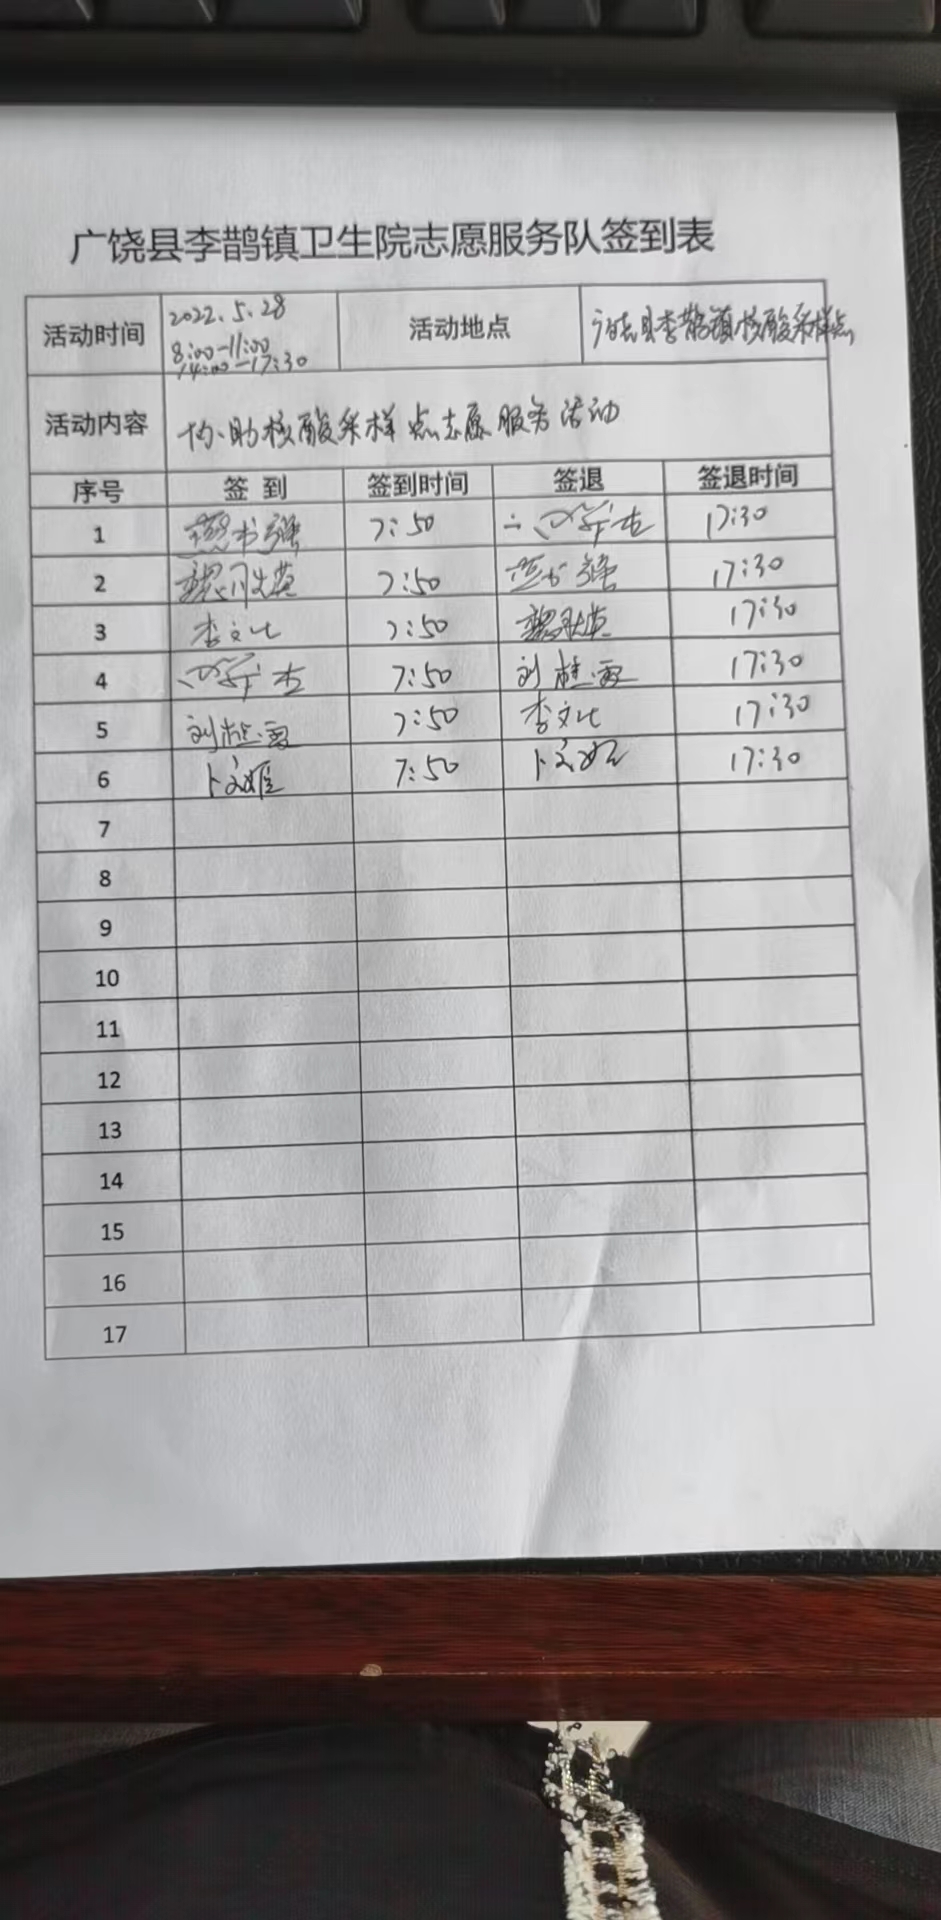 广饶县李鹊镇卫生院志愿服务队签到表
活动时间 2022.5.28 8:00-11:00 14:00-17:30 活动地点 广饶县李鹊镇核酸采样点
活动内容 协助核酸采样点志愿服务活动
序号 签到 签到时间 签退 签退时间
1 7:50 17:30
2 7:50 17:30
3 李文化 7:50 17:30
4 7:50 刘桂霞 17:30
5 刘桂霞 7:50 李文化 17:30
6 7:50 17:30
7
8
9
10
11
12
13
14
15
16
17